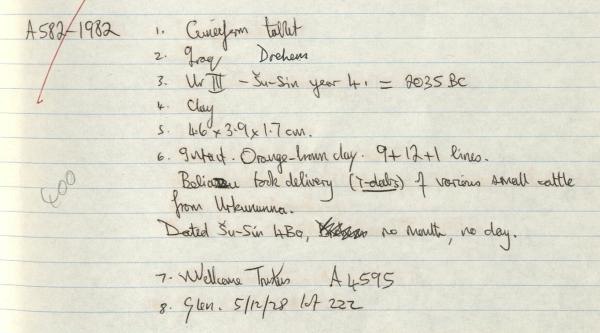 A582-1982
1. Cuneiform tablet
2. Iraq Drehem
3. Ur III - Šu-Sin year 4. = 2035 BC
4. Clay
5. 4.6 x 3.9 x 1.7 cm.
6. Intact. Orange-brown clay. 9+12+1 lines.
took delivery (ì-dab5) of various small cattle
from Urkununna.
Dated Šu-Sin 4BO, no month, no day.
600
7. Wellcome Trustees A4595
8. Glen. 5/12/28 lot 222